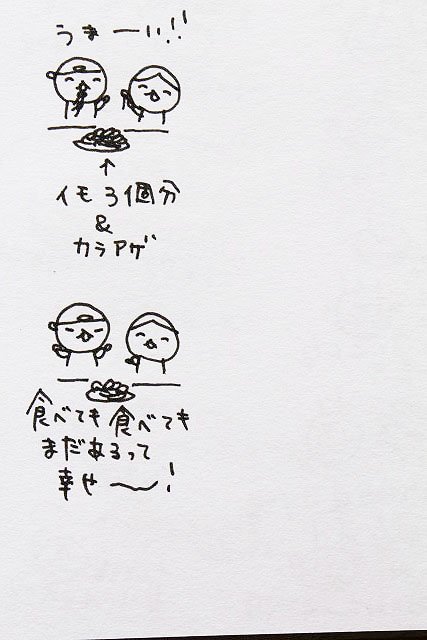 うまーい!!
↑
イモ3個分
&
カラアゲ
食べても食べても
まだあるって
幸や〜!